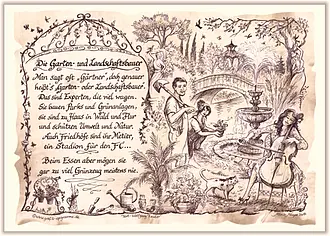 Die Garten- und Landschaftsbauer
Man sagt oft „Gärtner", doch genauer
heißt's Garten- oder Landschaftsbauer.
Das sind Experten, die viel wagen.
Sie bauen Parks und Grünanlagen,
sie sind zu Haus in Wald und Flur
und schützen Umwelt und Natur.
Auch Friedhöfe sind ihr Metier,
ein Stadion für den FC...
Beim Essen aber mögen sie
gar zu viel Grünzeug meistens nie.